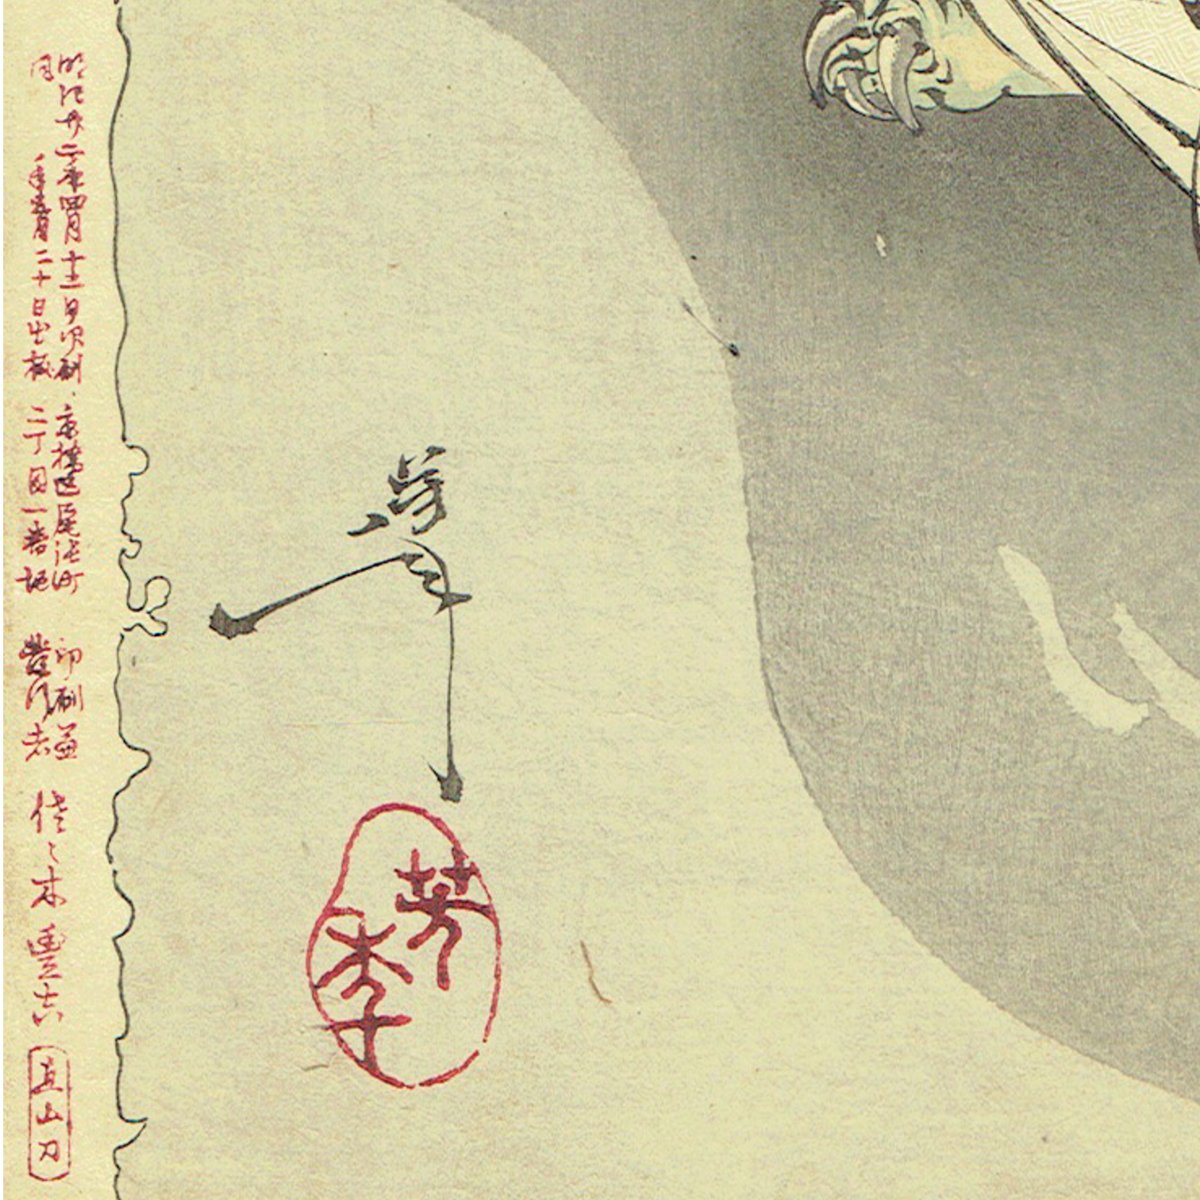 芳年
芳年
明治廿二年四月十二日印刷
同年 月二十日出板
京橋區尾張町
二丁目一番地
印刷兼
發行者
佐々木豊吉
直山刀